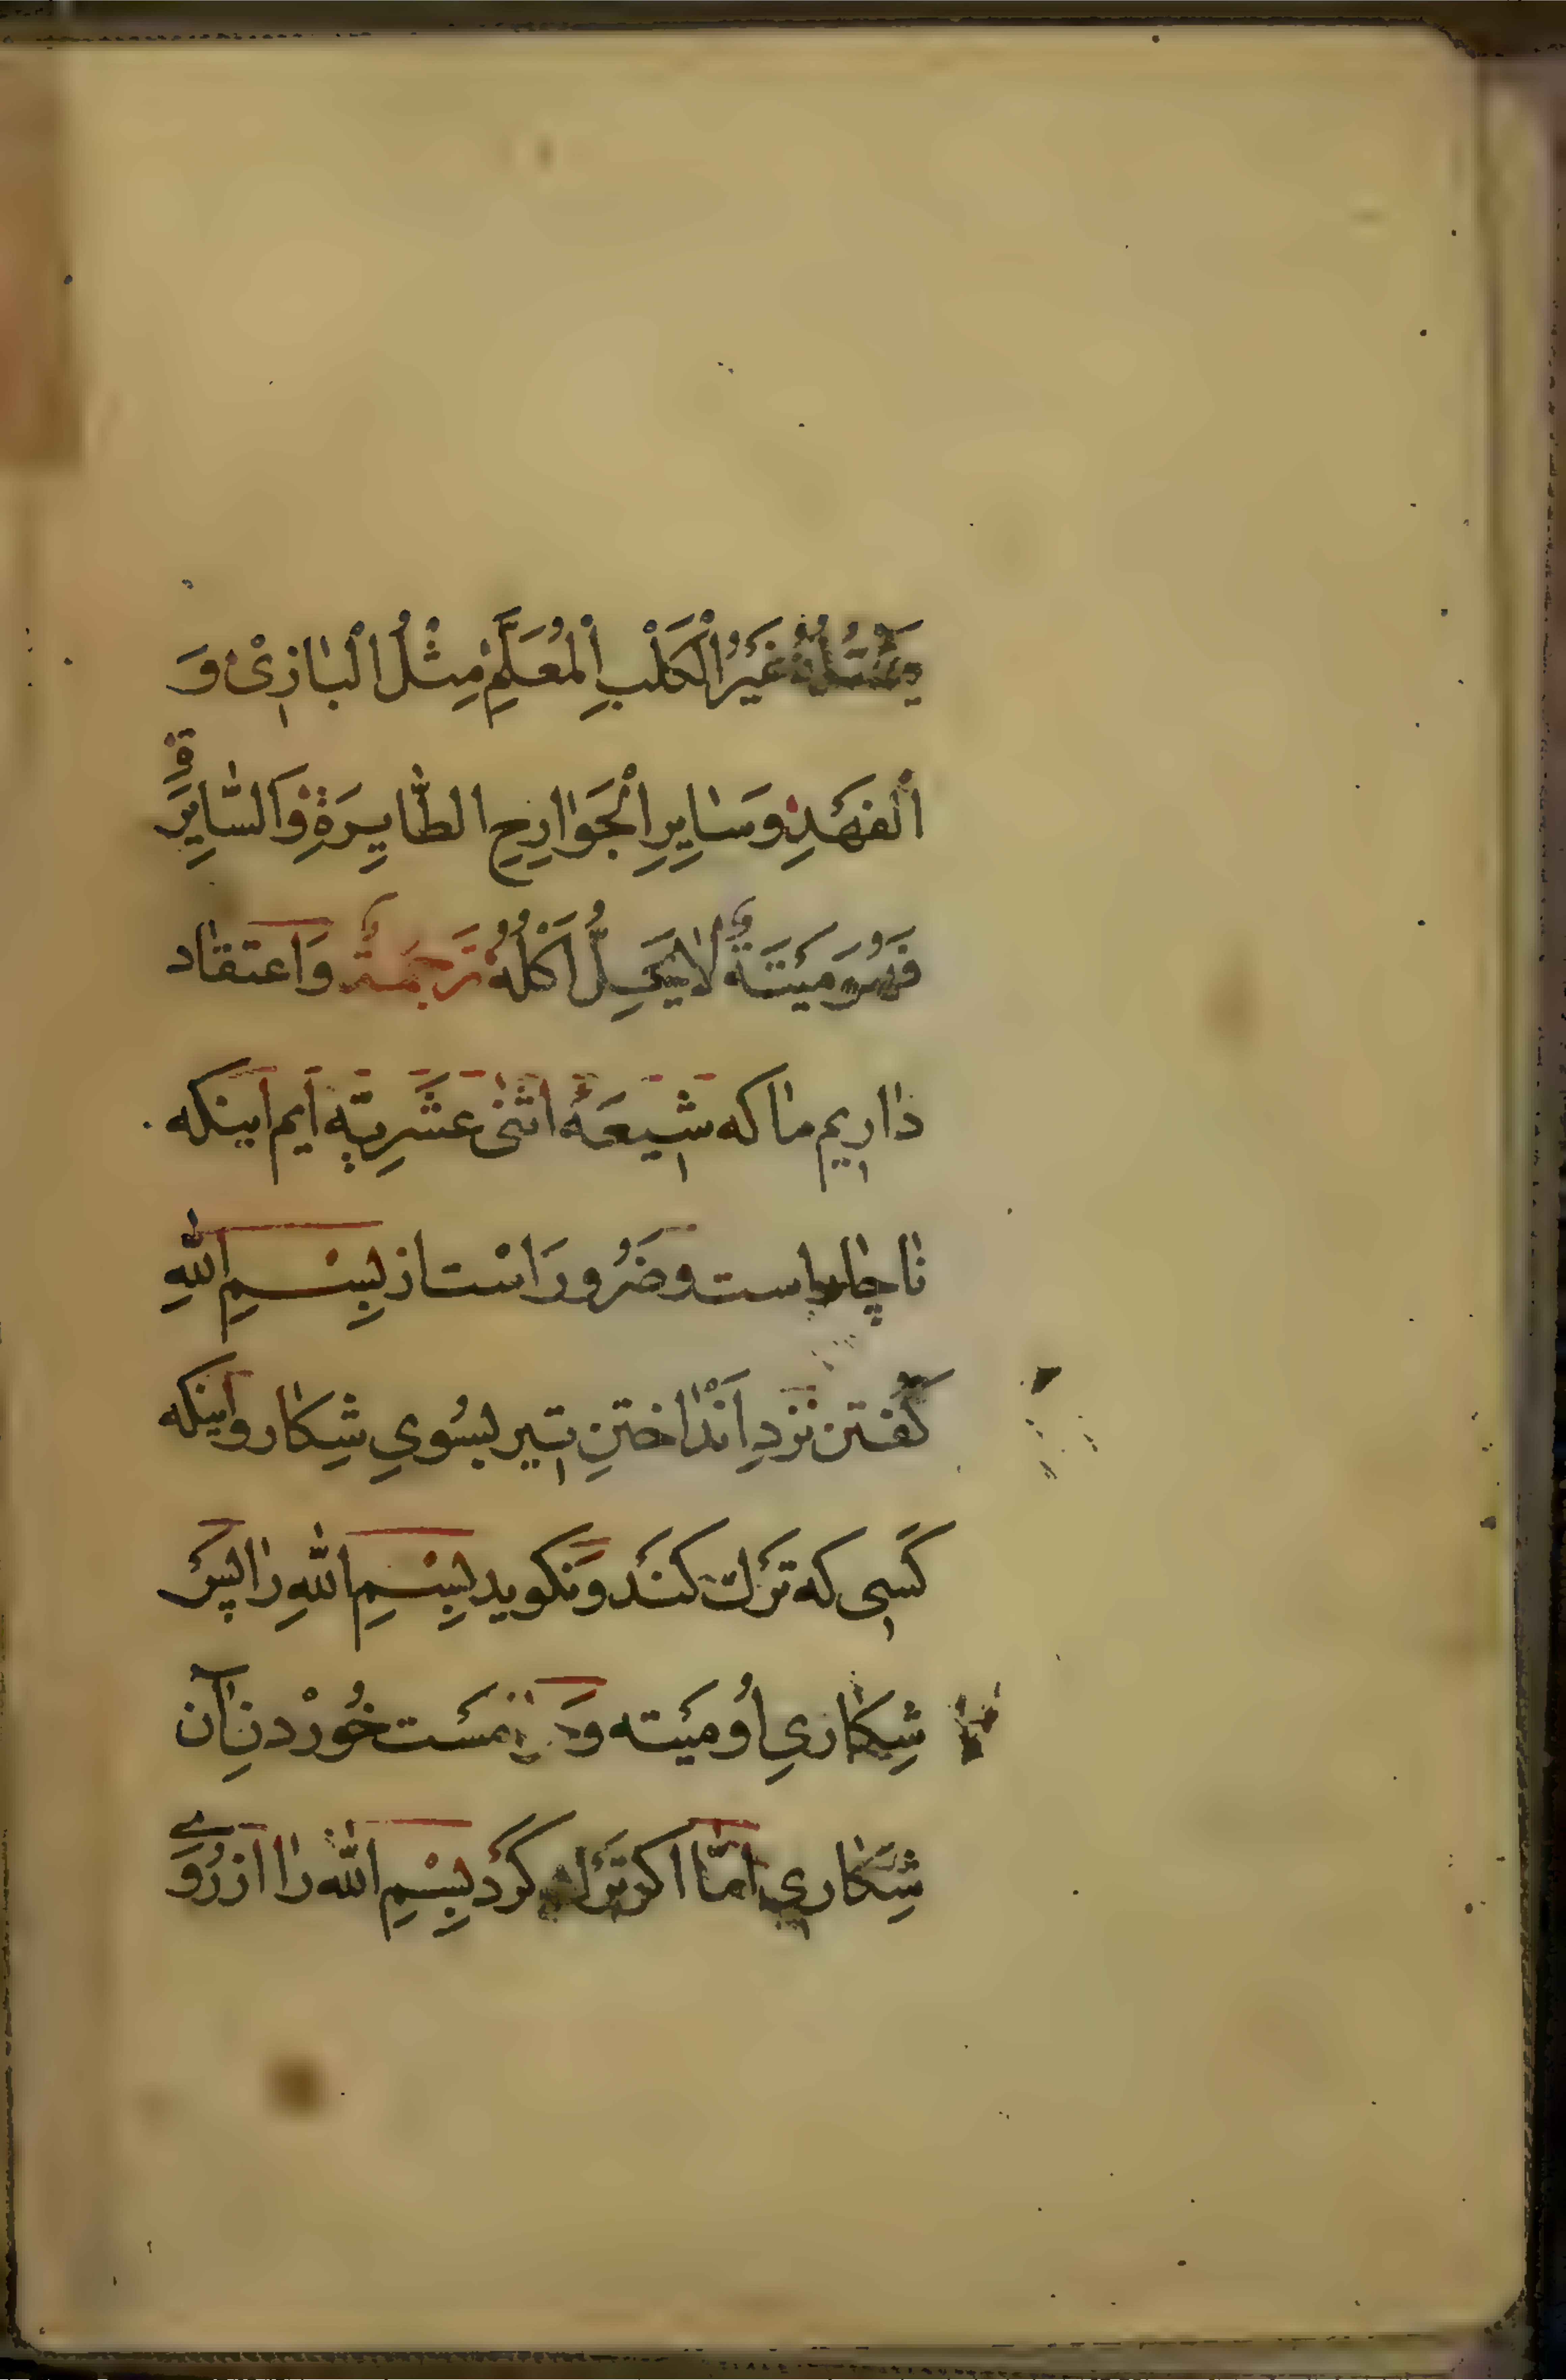 يَقْتُلُهُ غَيْرُ الْكَلْبِ الْمُعَلَّمِ مِثْلُ الْبَازِيْ وَ
الْفَهْدِ وَسَايِرِ الْجَوَارِحِ الطَّايِرَةِ وَالسَّايِرَةِ
فَهُوَ مَيْتَةٌ لَا يَحِلُّ اَكْلُهُ تَرجَمَهٌ وَاعتقاد
داریم ما که شیعَهٔ اثنی عَشَرِیّه ایم اینکه
ناچار است و ضَرُور است از بِسْمِ اللّهِ
کُفتن نَزدِ اَنْداختنِ تیر بسُویِ شِکار و اینکه
کَسی که تَرْك کنَد وَ نَکوید بِسْمِ اللّهِ را پس
شِکاریِ اُو مَیْته وَ مَست خُورْدنِ آن
شِکاری امّا اکر تَرْك کَرْد بِسْمِ اللّه را از رُویِ